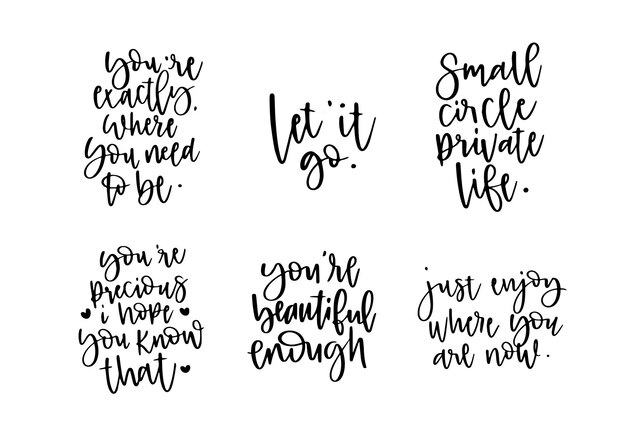 you're
exactly.
where
you need
to be.
let it
go.
Small
circle
private
life.
you're
precious
i hope
you know
that
you're
beautiful
enough
just enjoy
where you
are now.